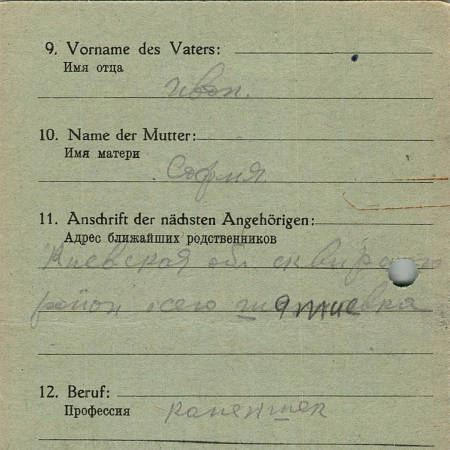 9. Vorname des Vaters:
Имя отца
Иван.
10. Name der Mutter:
Имя матери
София.
11. Anschrift der nächsten Angehörigen:
Адрес ближайших родственников
Киевская обл сквирский
район село
12. Beruf:
Профессия
каменшек